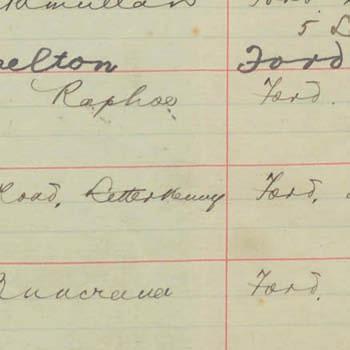 5
elton Ford
Raphoe Ford.
Road, Letterkenny Ford,
Buncrana Ford.